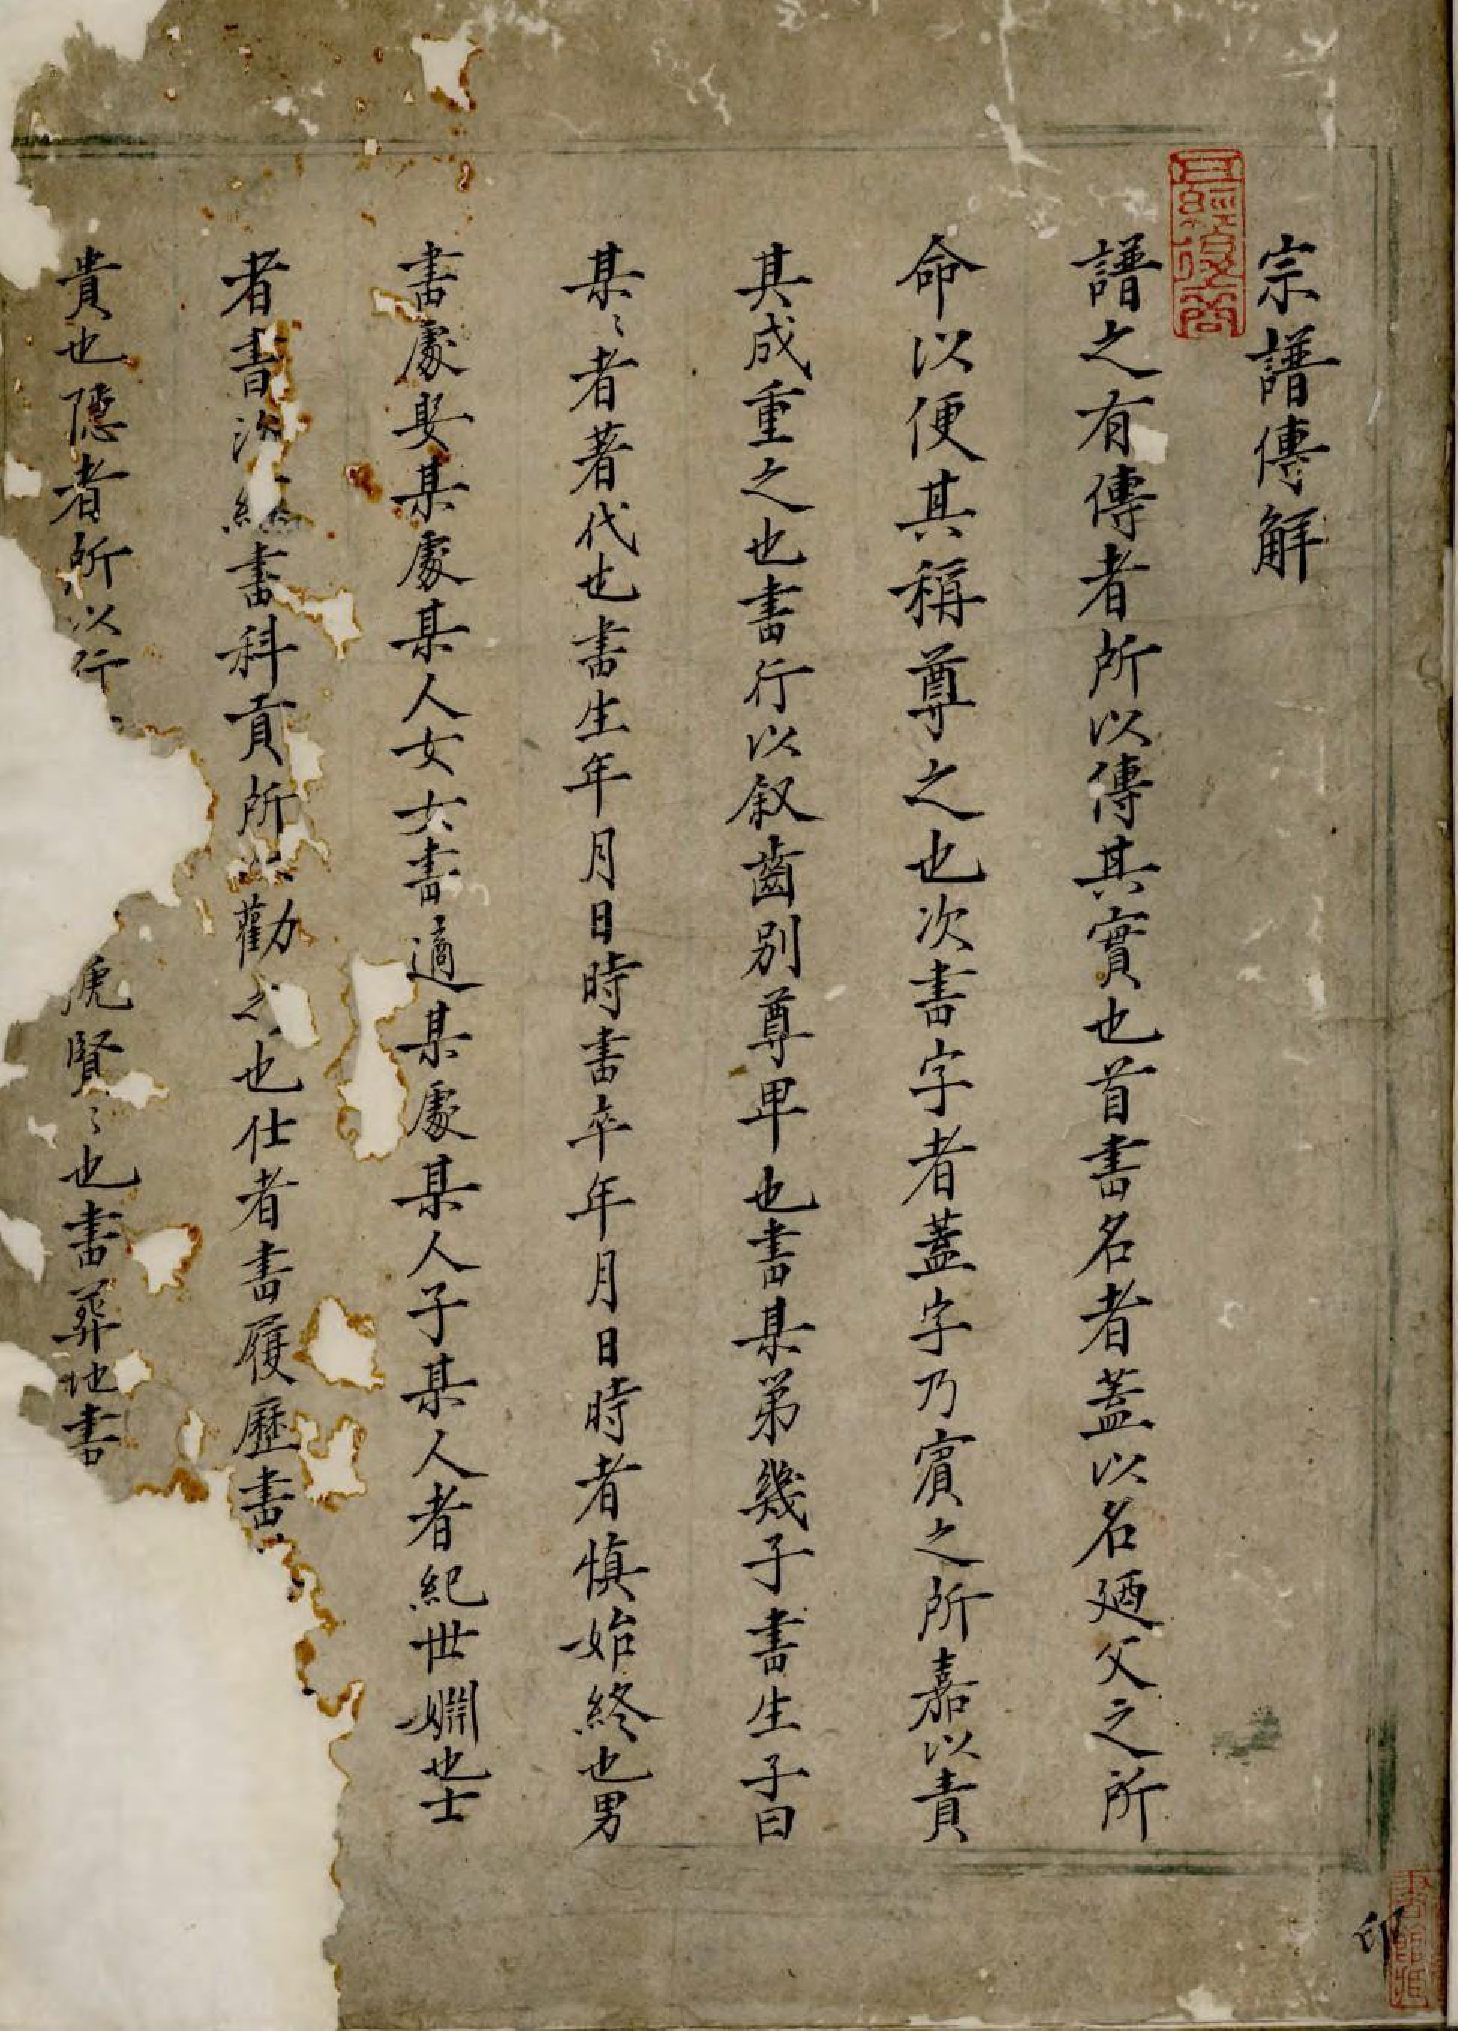 宗譜傳解
譜之有傳者所以傳其實也首書名者蓋以名廼父之所
命以便其稱尊之也次書字者蓋字乃賓之所嘉以責
其成重之也書行以叙齒別尊卑也書某弟幾子書生子曰
某〻者著代也書生年月日時書卒年月日時者慎始終也男
書處娶某處某人女女書適某處某人子某人者紀世婣也士
者書治經書科貢所以勸之也仕者書履歷書
貴也隱者所以行
賢〻也書葬地書
印